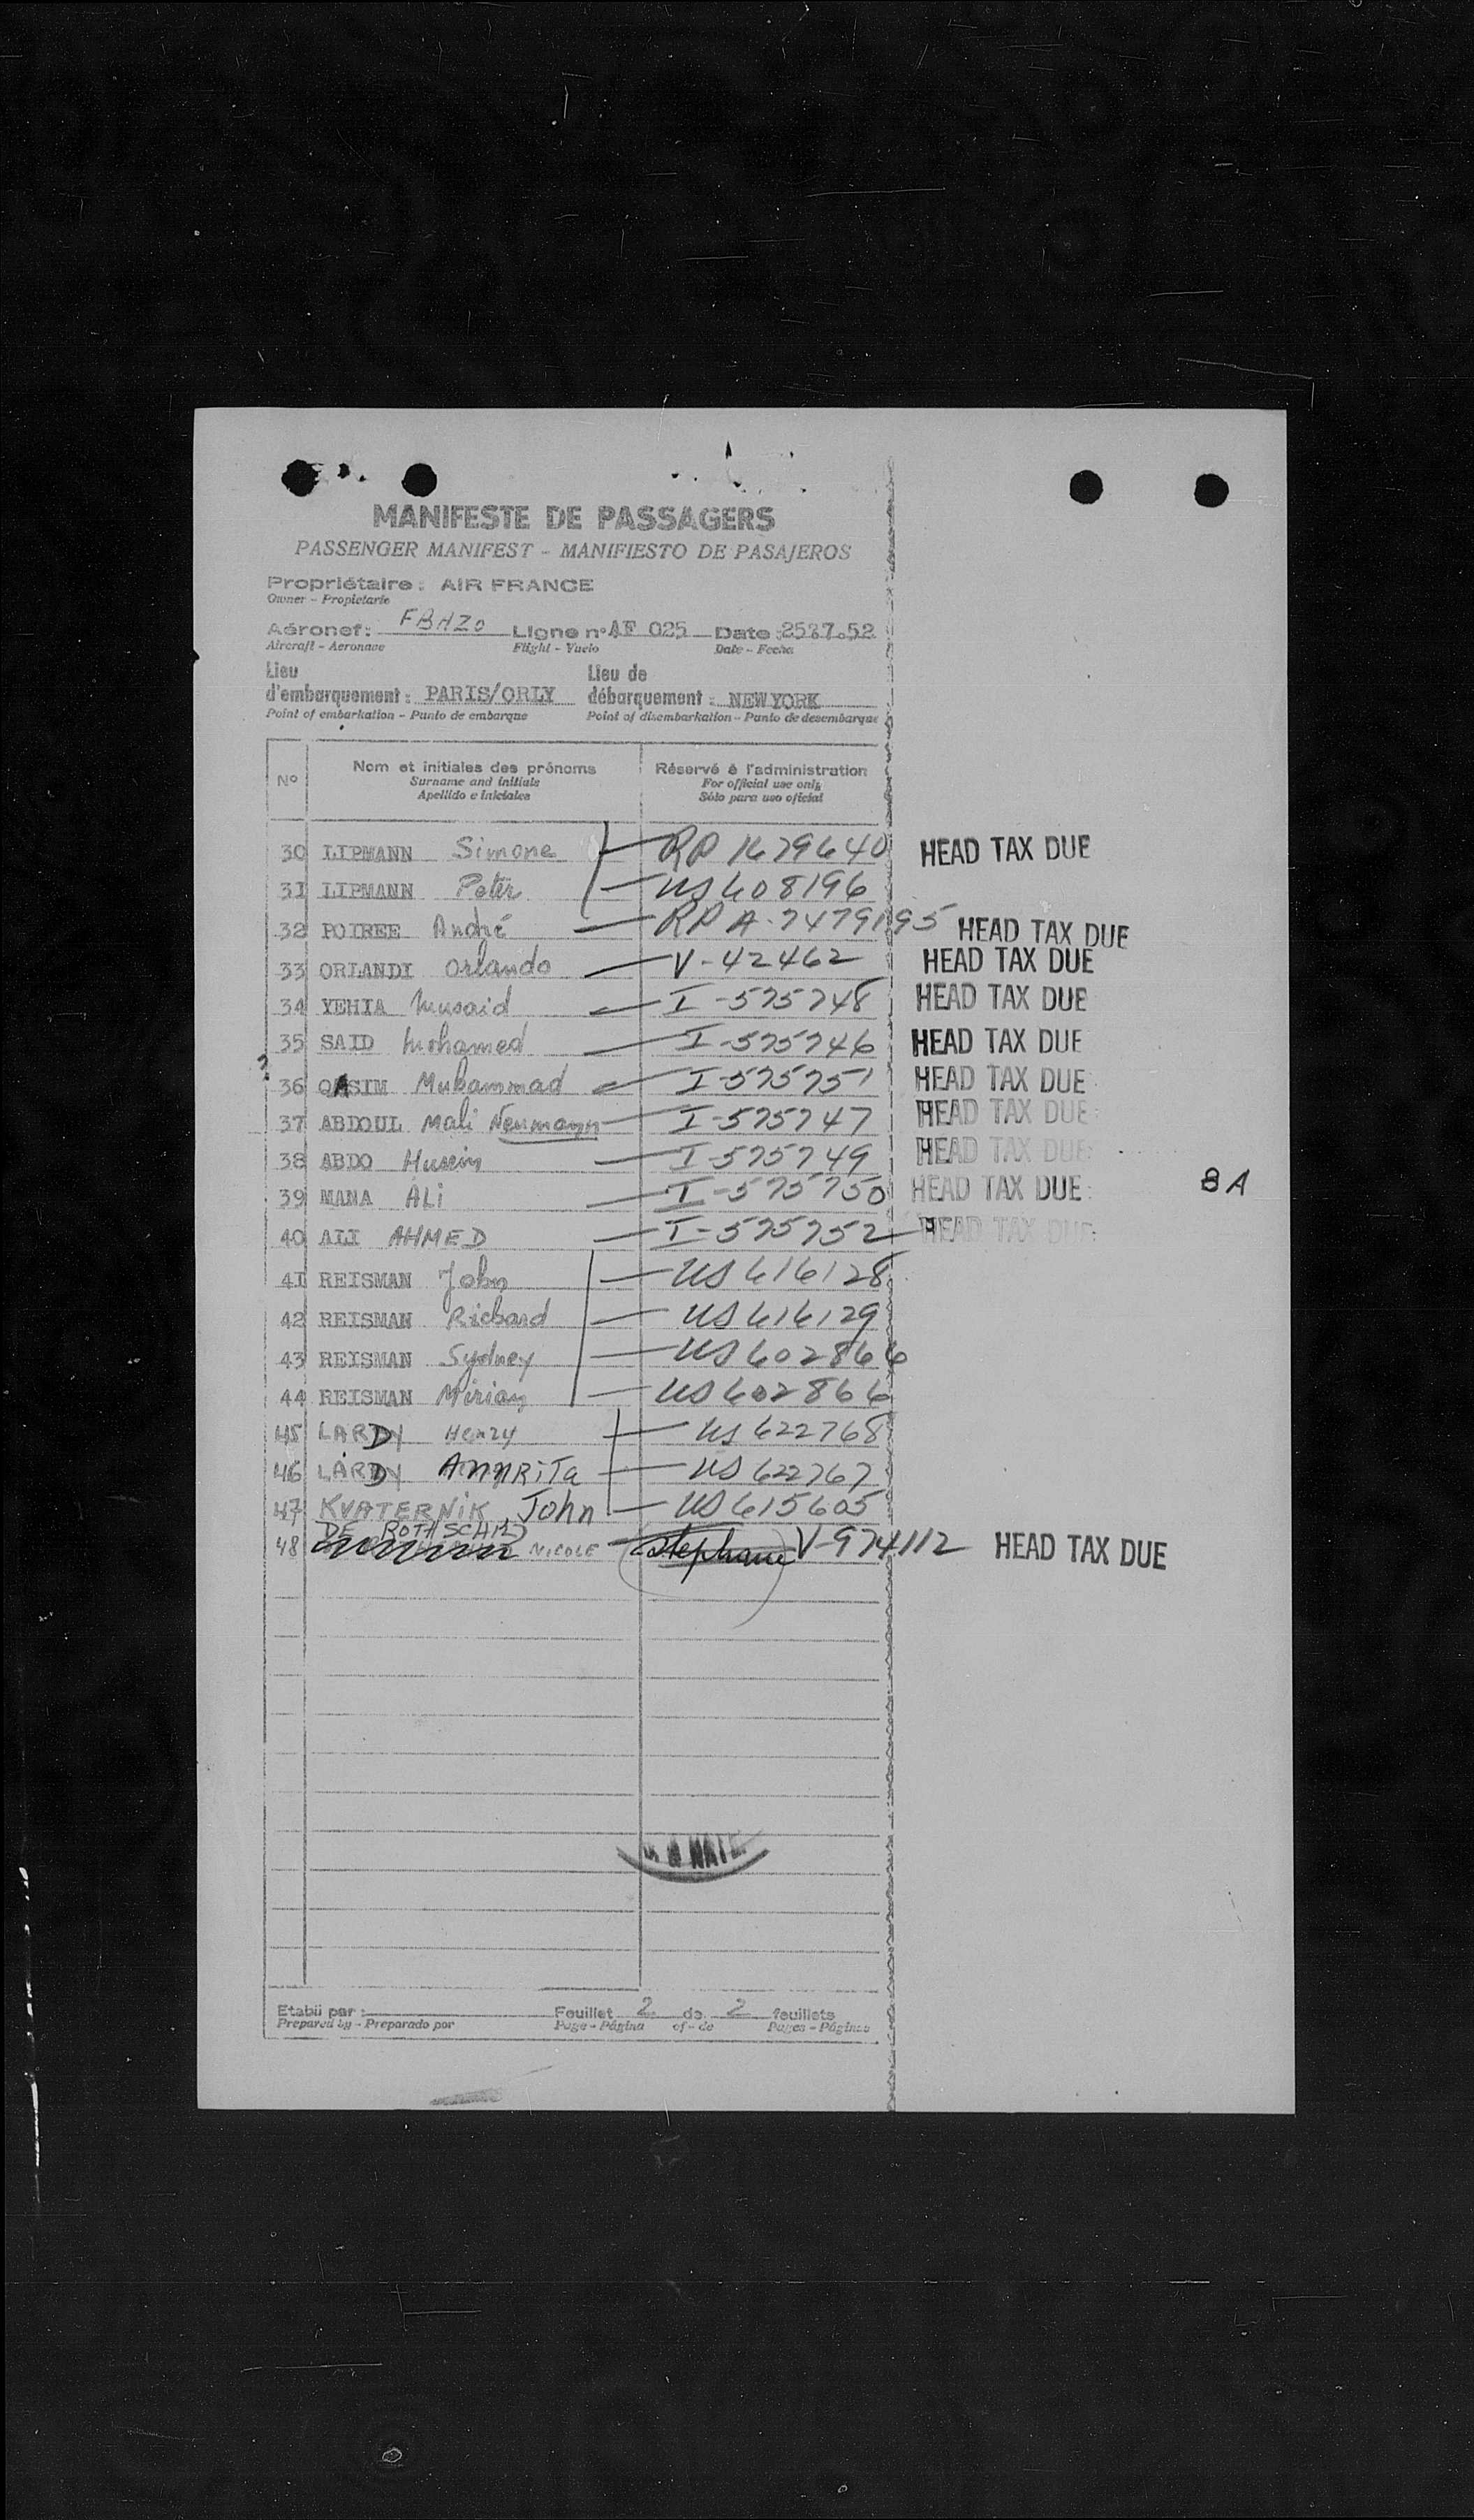 MANIFESTE DE PASSAGERS
PASSENGER MANIFEST - MANIFIESTO DE PASAJEROS
Propriétaire : AIR FRANCE
Owner - Propietario
Aéronef : FBAZO Ligne n° AF 025 Date : 25.7.52
Aircraft - Aeronave Flight - Vuelo Date - Fecha
Lieu Lieu de
d'embarquement : PARIS/ORLY débarquement : NEW YORK
Point of embarkation - Punto de embarque Point of disembarkation - Punto de desembarque
N° Nom et initiales des prénoms Réservé à l'administration
Surname and initials For official use only
Apellido e iniciales Sólo para uso oficial
30 LIPMANN Simone RP 1679640 HEAD TAX DUE
31 LIPMANN Peter US 608196
32 POIREE André RP A-7479195 HEAD TAX DUE
33 ORLANDI Orlando V-42462 HEAD TAX DUE
34 YEHIA Musaid I-575748 HEAD TAX DUE
35 SAID Mohamed I-575746 HEAD TAX DUE
? 36 QASIM Muhammad I-575751 HEAD TAX DUE
37 ABDOUL Mali Neumann I-575747 HEAD TAX DUE
38 ABDO Hussin I-575749 HEAD TAX DUE
39 MANA ALi I-575750 HEAD TAX DUE 8A
40 ALI AHMED I-575752 HEAD TAX DUE
41 REISMAN John US 616128
42 REISMAN Richard US 616129
43 REISMAN Sydney US 602866
44 REISMAN Miriam US 602866
45 LARDY Henry US 622768
46 LARDY ANNRiTa US 622767
47 KVATERNiK John US 615605
DE ROTHSCHILD
48 NICOLE (Stephane) V-974112 HEAD TAX DUE
Etabli par : Feuillet 2 de 2 feuillets
Prepared by - Preparado por Page - Página of - de Pages - Páginas